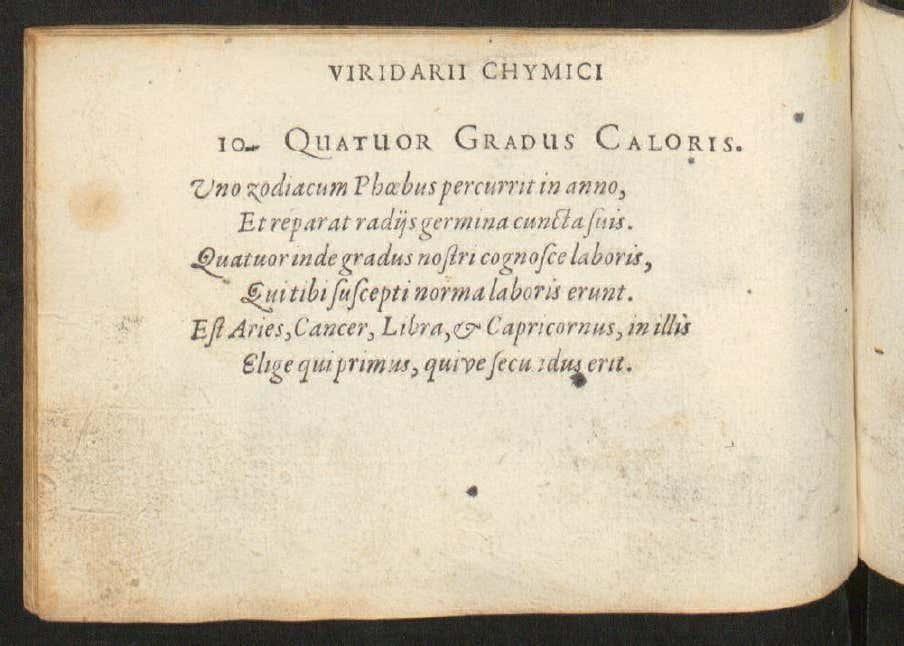 VIRIDARII CHYMICI
10. QUATUOR GRADUS CALORIS.
Uno zodiacum Phœbus percurrit in anno,
Et reparat radijs germina cuncta ſuis.
Quatuor inde gradus noſtri cognoſce laboris,
Qui tibi ſuſcepti norma laboris erunt.
Eſt Aries, Cancer, Libra, & Capricornus, in illis
Elige qui primus, quive ſecundus erit.